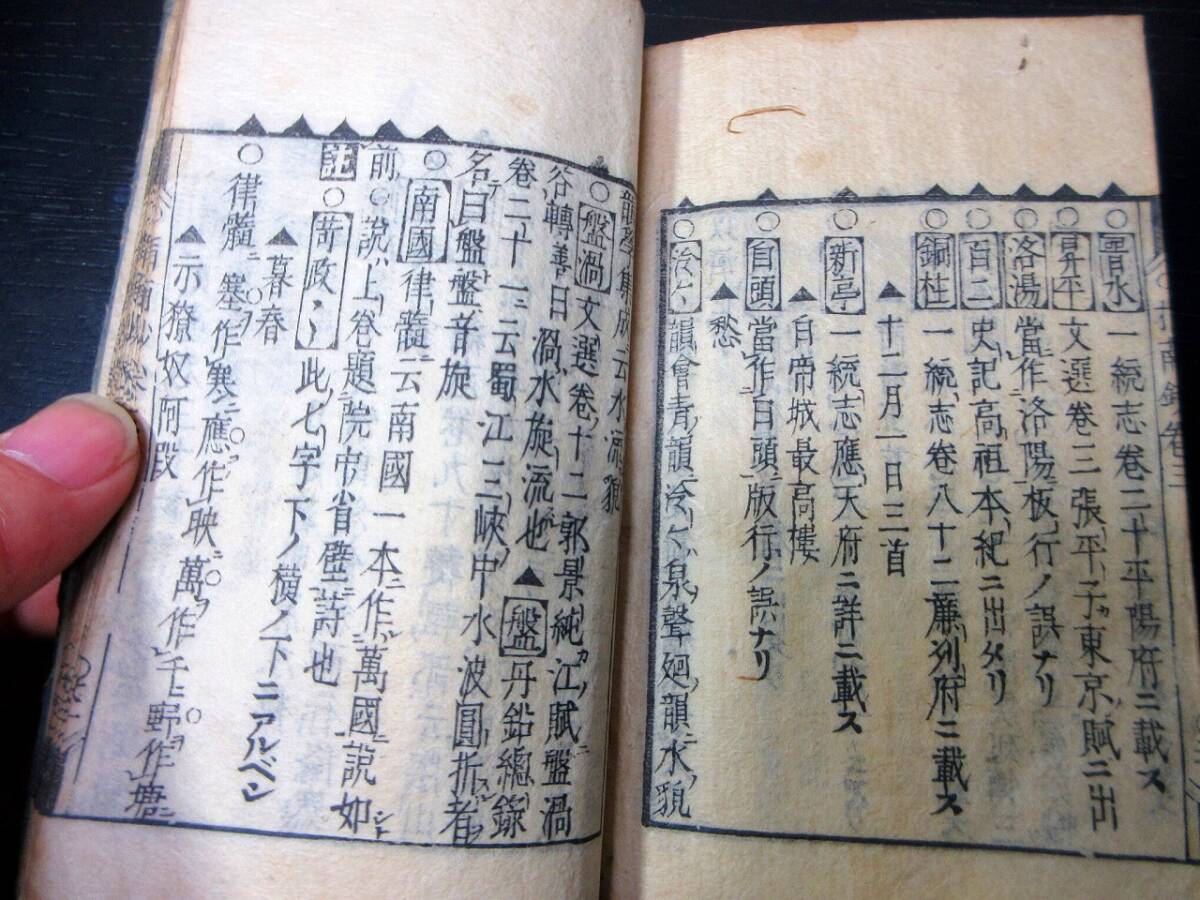 ○晋水 一統志卷二十平陽府ニ載ス
○昇平 文選卷三張平子カ東京ノ賦ニ出
○洛湯 當ニ作ル洛陽ニ板行ノ誤ナリ
○百二 史記高祖本紀ニ出タリ
○銅柱 一統志卷八十二廉列府ニ載ス
▲十二月一日三首
○新亭 一統志應天府ニ詳ニ載ス
▲白帝城最高樓
○自頭 當作白頭ニ版行ノ誤ナリ
▲愁
○泠〻 韻會青韻泠〻泉聲廻韻水貌
韻學集成云水流貌
○盤渦 文選卷十二郭景純カ江賦盤渦
谷轉善曰渦水旋流也▲盤丹鉛總錄
卷二十一ニ云蜀江三峽中水波圓折者ヲ
名テ曰盤盤音旋
○南國 律髓ニ云南國一本ニ作萬國ニ說如シ
前ノ○說上卷題院中省壁ニ詩也
註○苛政〻〻此ノ七字下ノ橫ノ下ニアルベシ
▲暮春
○律髓ニ塞作寒ニ應作映ニ萬作千ニ野作塘ニ
▲示獠奴阿段